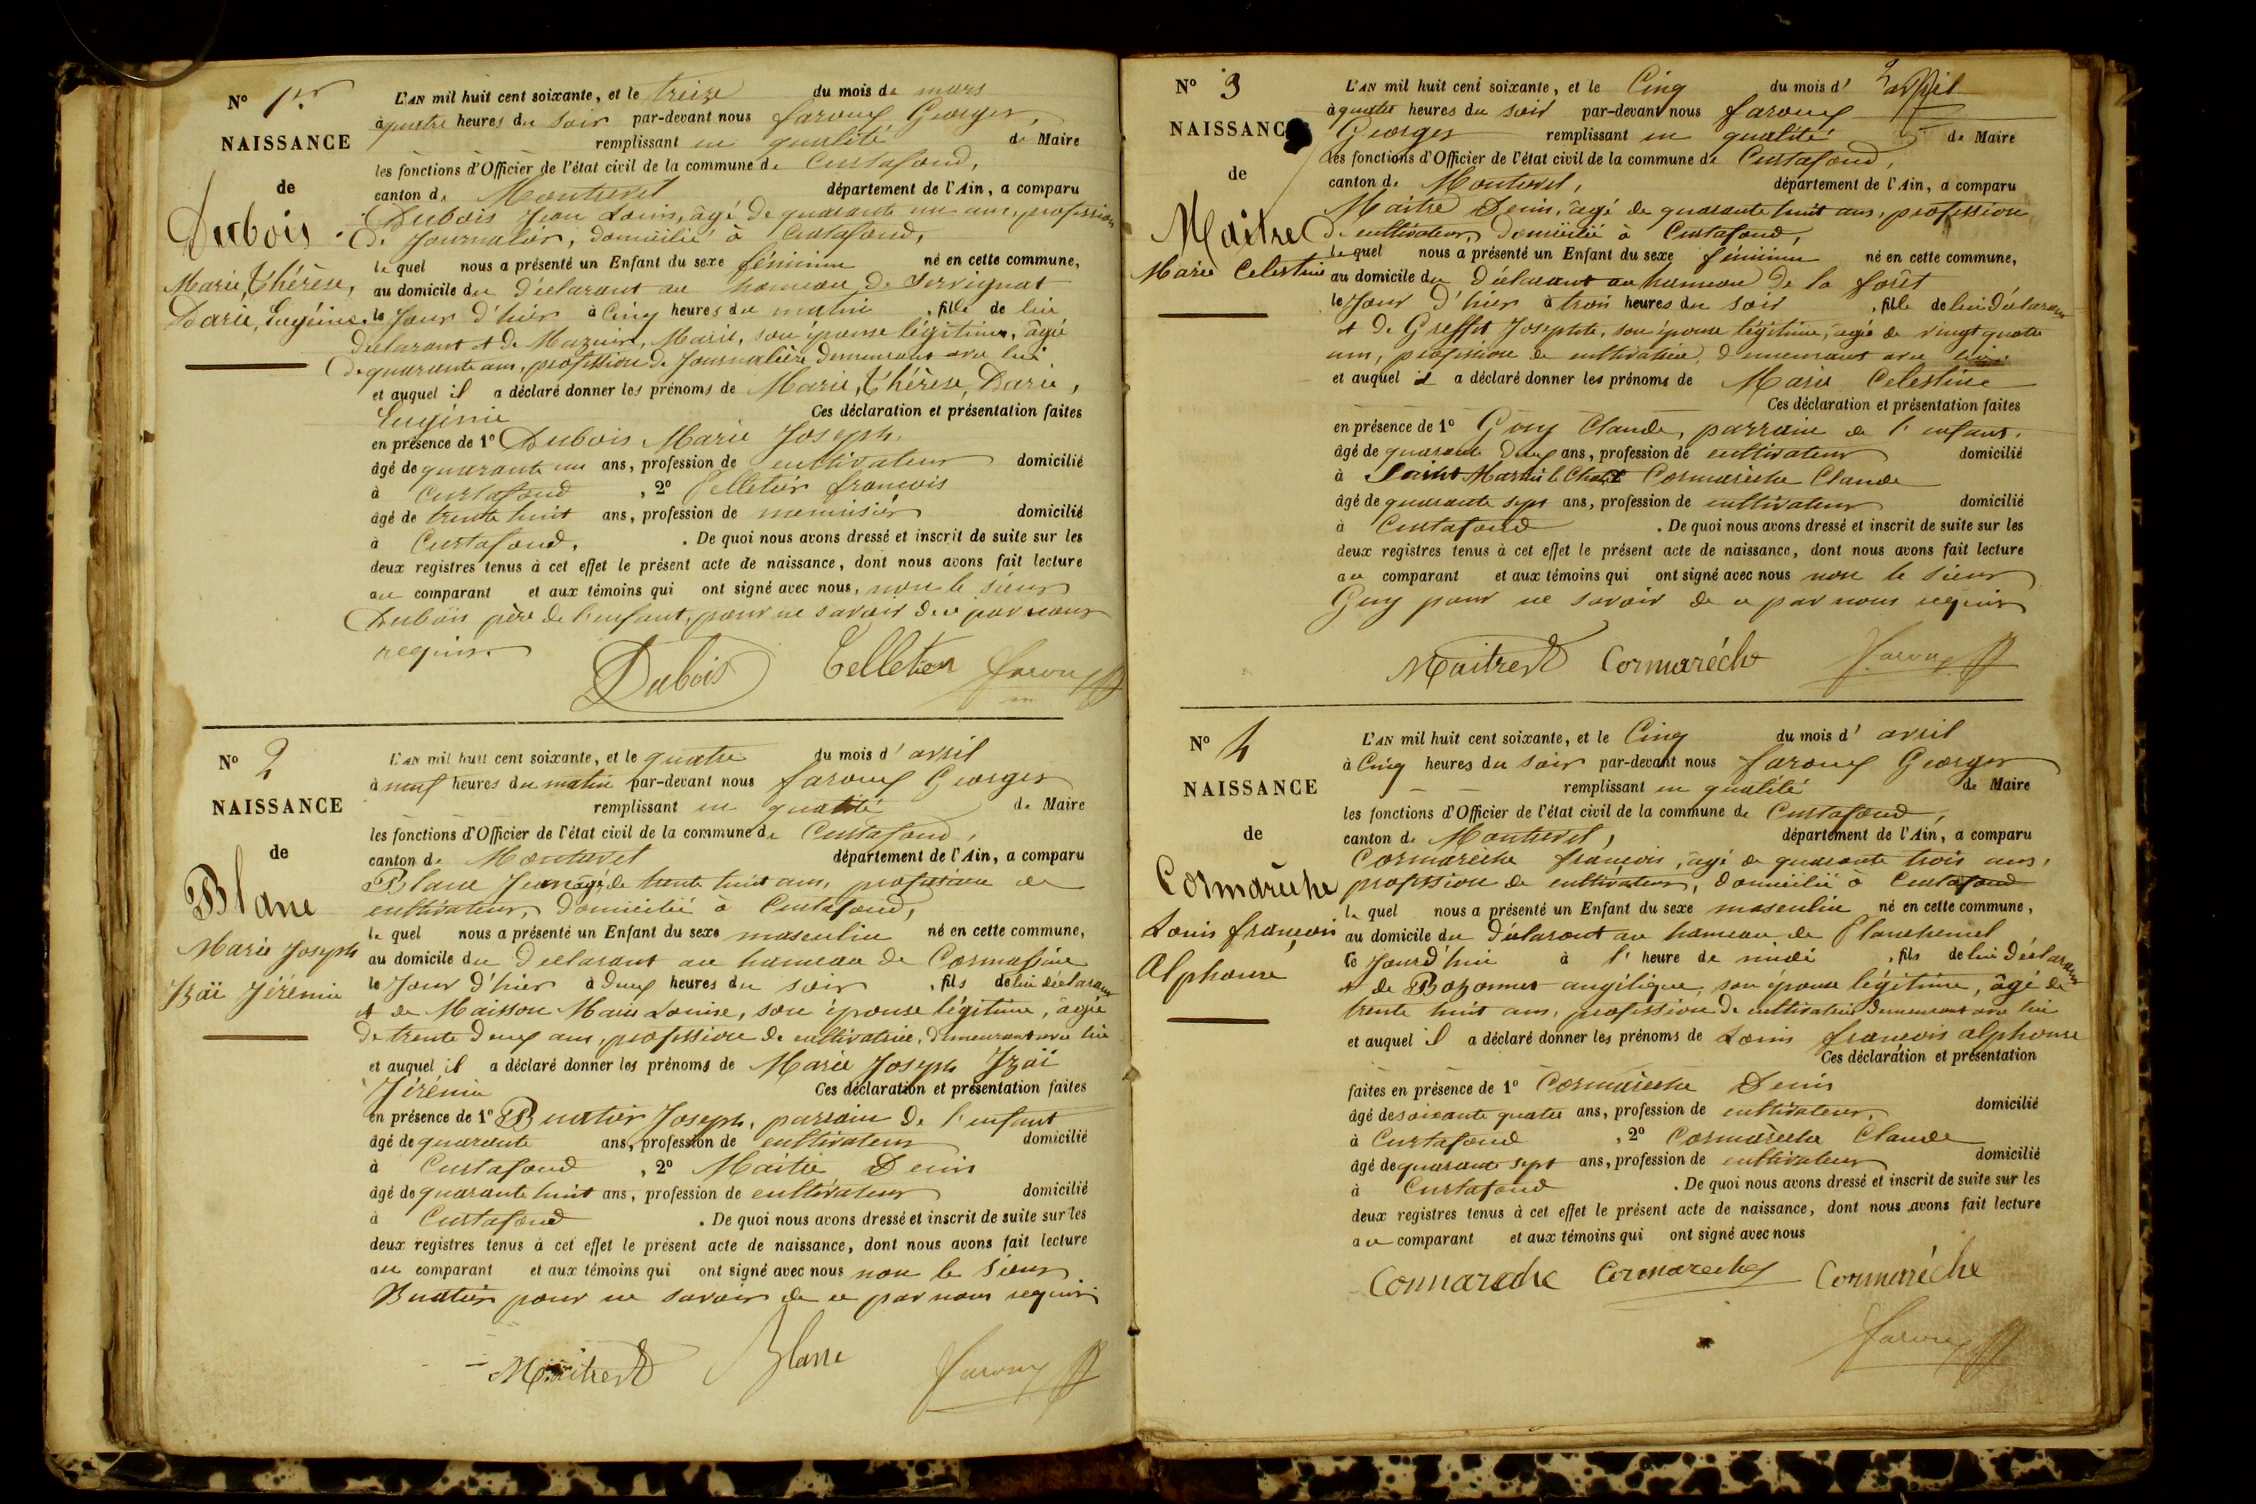 N° 1er
NAISSANCE
de
Dubois
Marie, Thérèse,
Darie, Eugénie.
L'AN mil huit cent soixante, et le treize du mois de mars
à quatre heures du soir par-devant nous faroux Georges,
remplissant en qualité de Maire
les fonctions d'Officier de l'état civil de la commune de Curtafond,
canton de Montrevel département de l'Ain, a comparu
Dubois Jean Louis, âgé de quarante un ans, profession
de Journalier, domicilié à Curtafond,
le quel nous a présenté un Enfant du sexe féminin né en cette commune,
au domicile du déclarant au hameau de Servignat
le Jour d'hier à Cinq heures du matin , fille de lui
déclarant et de Mazuir, Marie, son épouse légitime, âgée
de quarante ans, profession de Journalière demeurant avec lui
et auquel il a déclaré donner les prénoms de Marie, Thérèse, Darie,
Eugénie Ces déclaration et présentation faites
en présence de 1° Dubois Marie Joseph,
âgé de quarante un ans, profession de cultivateur domicilié
à Curtafond , 2° Pelletier francois
âgé de trente huit ans, profession de menuisier domicilié
à Curtafond. . De quoi nous avons dressé et inscrit de suite sur les
deux registres tenus à cet effet le présent acte de naissance, dont nous avons fait lecture
au comparant et aux témoins qui ont signé avec nous, non le sieur
Dubois père de l'enfant, pour ne savoir de ce par nous
requis
Dubois Pelletier faroux
N° 2
NAISSANCE
de
Blanc
Marie Joseph
Izaï Jérémie
L'AN mil huit cent soixante, et le quatre du mois d' avril
à neuf heures du matin par-devant nous faroux Georges
remplissant en qualité de Maire
les fonctions d'Officier de l'état civil de la commune de Curtafond,
canton de Montrevel département de l'Ain, a comparu
Blanc Jean âgé de trente huit ans, profession de
cultivateur, domicilié à Curtafond,
le quel nous a présenté un Enfant du sexe masculin né en cette commune,
au domicile du déclarant au hameau de
le Jour d'hier à deux heures du soir , fils de lui déclarant
et de Maisson Marie Louise, son épouse légitime, âgée
de trente deux ans, profession de cultivatrice, demeurant avec lui
et auquel il a déclaré donner les prénoms de Marie Joseph Izaï
Jérémie Ces déclaration et présentation faites
en présence de 1° Buatier Joseph, parrain de l'enfant
âgé de quarante ans, profession de cultivateur domicilié
à Curtafond , 2° Maitre Denis
âgé de quarante huit ans, profession de cultivateur domicilié
à Curtafond . De quoi nous avons dressé et inscrit de suite sur les
deux registres tenus à cet effet le présent acte de naissance, dont nous avons fait lecture
au comparant et aux témoins qui ont signé avec nous non le sieur
Buatier pour ne savoir de ce par nous requis
Maitre D Blanc faroux
N° 3
NAISSANCE
de
Maitre
Marie Celestine
L'AN mil huit cent soixante, et le Cinq du mois d' avril
à quatre heures du soir par-devant nous faroux
Georges remplissant en qualité de Maire
les fonctions d'Officier de l'état civil de la commune de Curtafond,
canton de Montrevel, département de l'Ain, a comparu
Maitre Denis, âgé de quarante huit ans, profession
de cultivateur, domicilié à Curtafond,
le quel nous a présenté un Enfant du sexe féminin né en cette commune,
au domicile du déclarant au hameau de la forêt
le Jour d'hier à trois heures du soir , fille de lui déclarant
et de Greffet Josephte, son épouse légitime, âgée de vingt quatre
ans, profession de cultivatrice, demeurant avec lui
et auquel il a déclaré donner les prénoms de Marie Celestine
Ces déclaration et présentation faites
en présence de 1° Guy Claude, parrain de l'enfant,
âgé de quarante deux ans, profession de cultivateur domicilié
à Saint Martin le Chatel Cormarèche Claude
âgé de quarante sept ans, profession de cultivateur domicilié
à Curtafond . De quoi nous avons dressé et inscrit de suite sur les
deux registres tenus à cet effet le présent acte de naissance, dont nous avons fait lecture
au comparant et aux témoins qui ont signé avec nous non le sieur
Guy pour ne savoir de ce par nous requis
Maitre D Cormaréche faroux
N° 4
NAISSANCE
de
Cormarèche
Louis françois
Alphonse
L'AN mil huit cent soixante, et le Cinq du mois d' avril
à Cinq heures du soir par-devant nous faroux Georges
remplissant en qualité de Maire
les fonctions d'Officier de l'état civil de la commune de Curtafond,
canton de Montrevel, département de l'Ain, a comparu
Cormarèche francois, âgé de quarante trois ans,
profession de cultivateur, domicilié à Curtafond
le quel nous a présenté un Enfant du sexe masculin né en cette commune,
au domicile du déclarant au hameau de
le Jourd'hui à l' heure de midi , fils de lui déclarant
et de Bozonnet angélique, son épouse légitime, âgé de
trente huit ans, profession de cultivatrice demeurant avec lui
et auquel il a déclaré donner les prénoms de Louis francois alphonse
Ces déclaration et présentation
faites en présence de 1° Cormarèche Denis
âgé de soixante quatre ans, profession de cultivateur, domicilié
à Curtafond , 2° Cormarèche Claude
âgé de quarante sept ans, profession de cultivateur domicilié
à Curtafond . De quoi nous avons dressé et inscrit de suite sur les
deux registres tenus à cet effet le présent acte de naissance, dont nous avons fait lecture
au comparant et aux témoins qui ont signé avec nous
Cormareche Cormareche Cormaréche
faroux